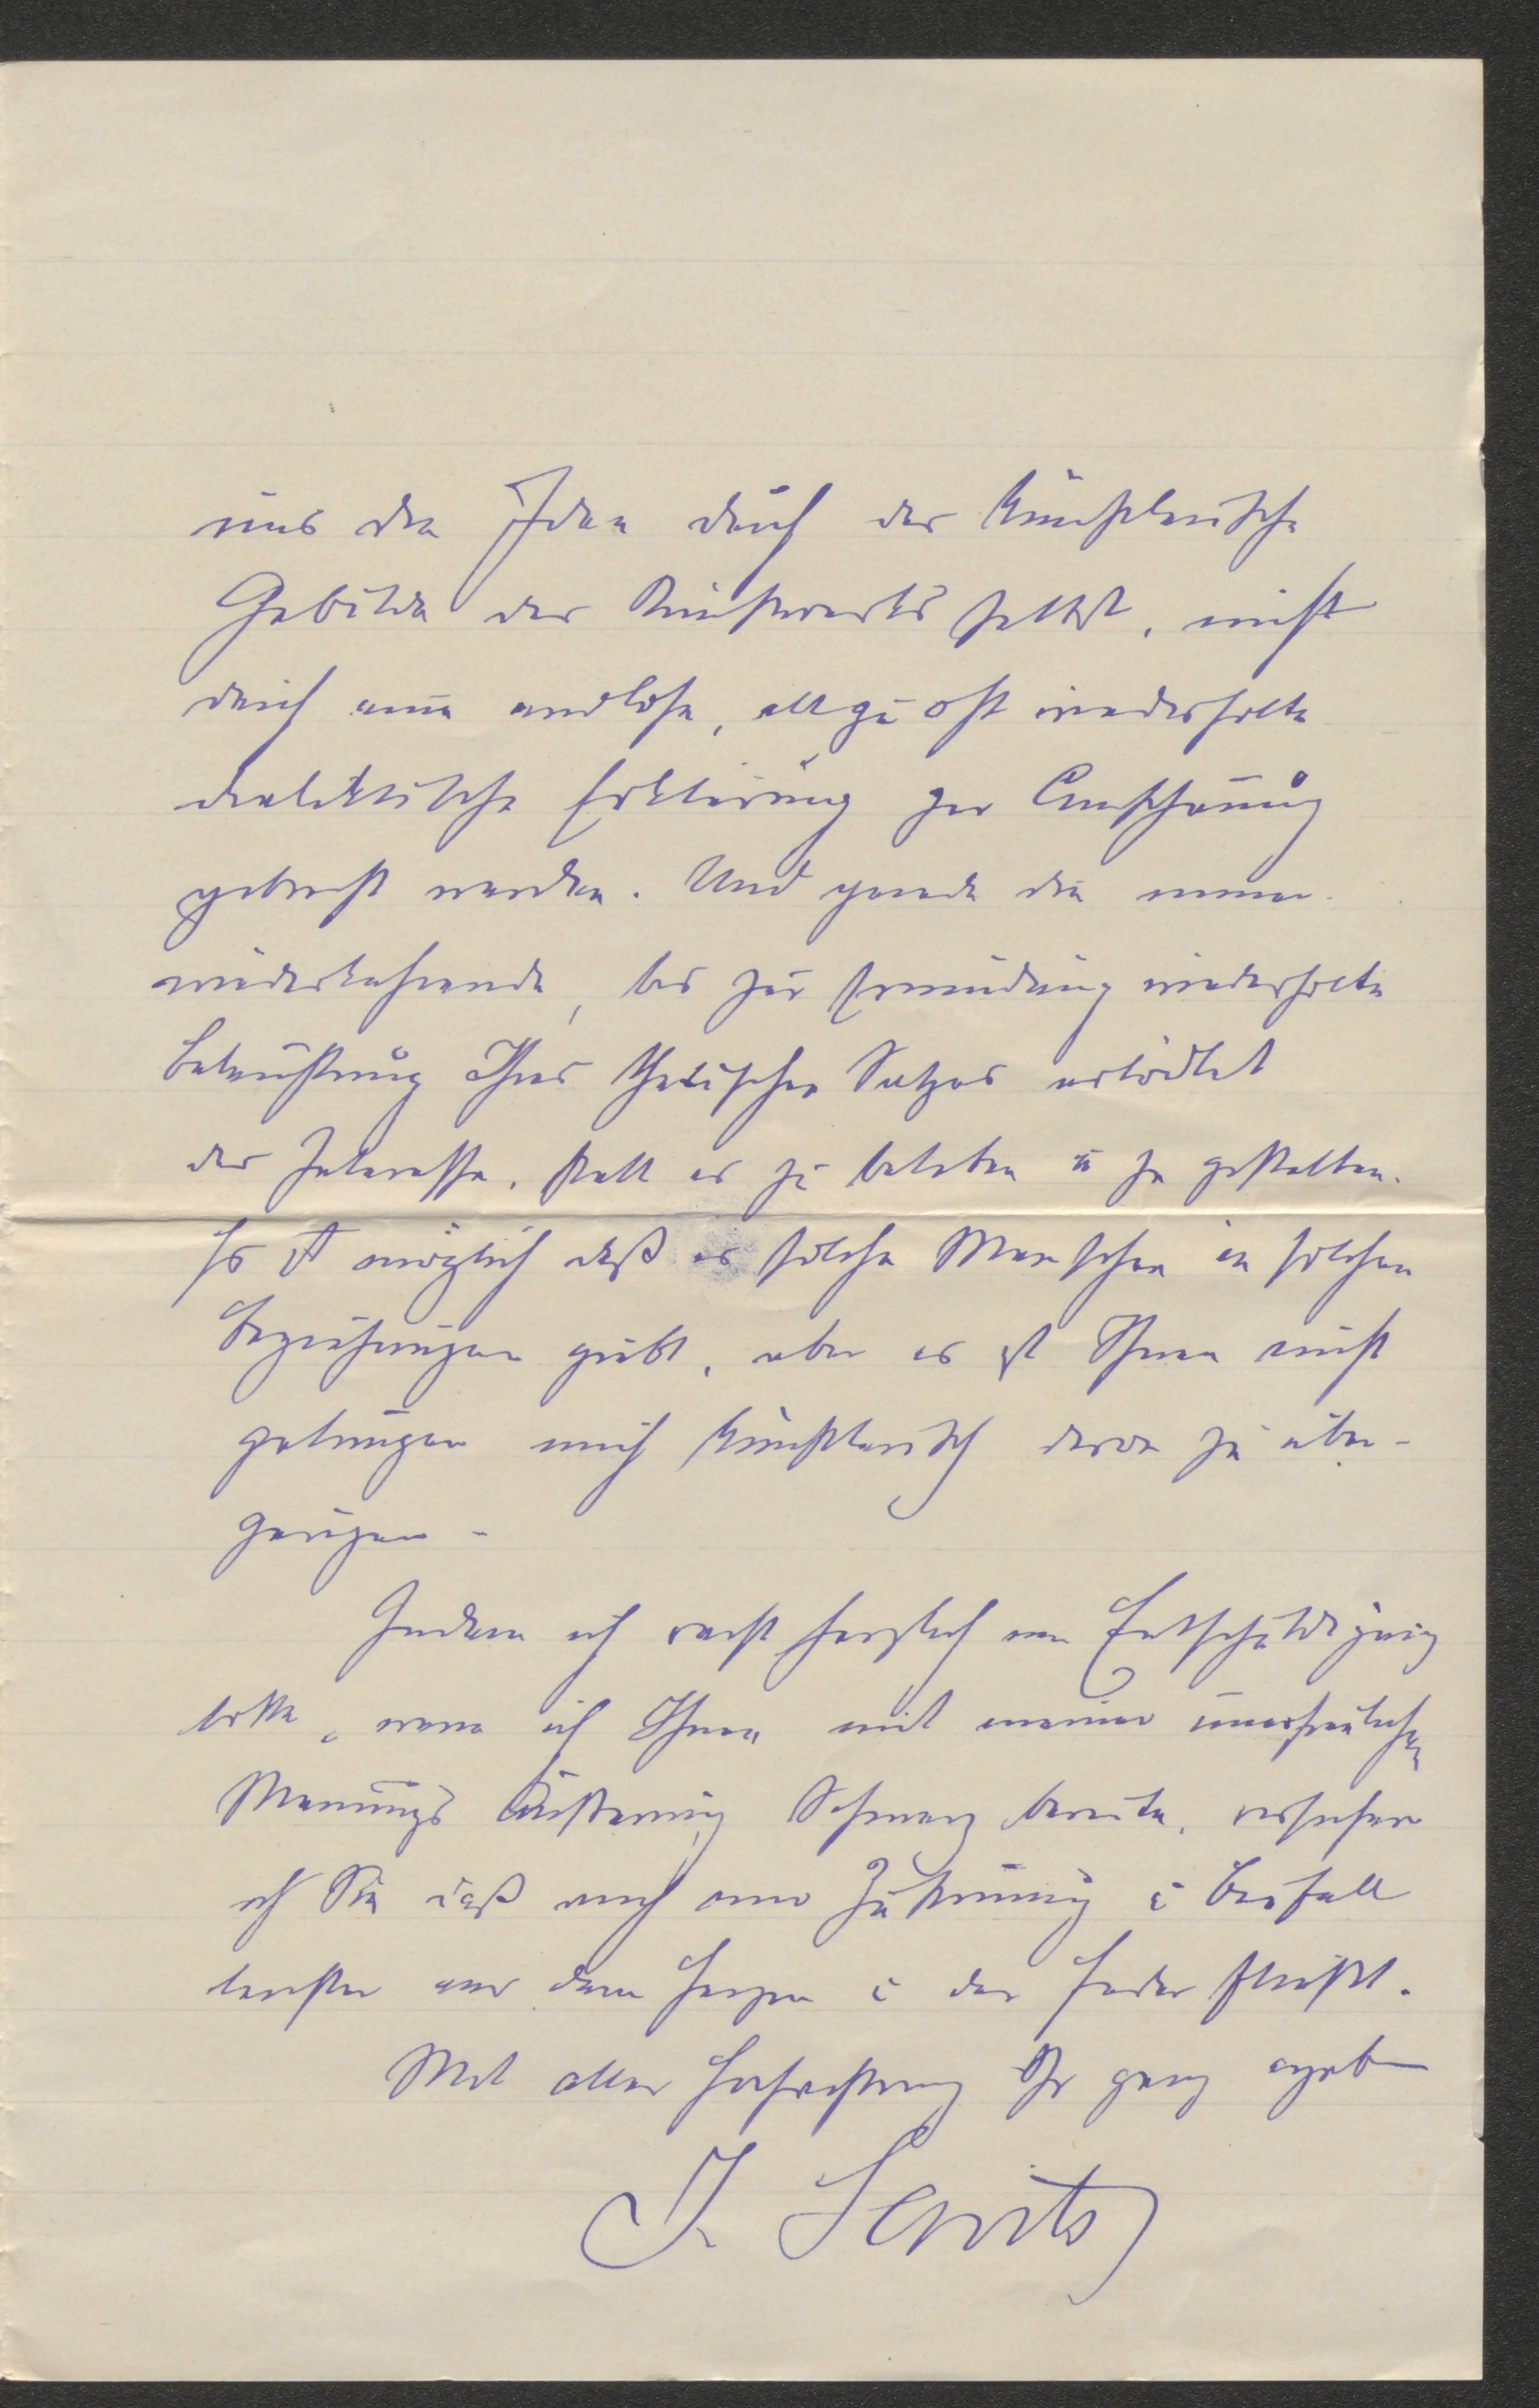 uns die Ideen durch das künstlerische
Gebilde des Kunstwerks selbst, nicht
durch eine endlose, allzu oft wiederholte
dialektische Erklärung zur Anschauung
gebracht werden. Und gerade die immer
wiederkehrende, bis zur Ermüdung wiederholte
Beleuchtung Ihres Satzes ertödtet
das Interesse, statt es zu beleben u zu gestalten.
Es ist möglich daß es solche Menschen in solchen
Beziehungen giebt, aber es ist Ihnen nicht
gelungen mich künstlerisch davon zu über-
zeugen -
Indem ich recht herzlich um Entschuldigung
bitte, wenn ich Ihnen mit meiner unerfreulichen
Meinungs Äußerung Schmerz bereite, versichere
ich Sie daß auch mir Zustimmung u Beifall
leichter aus dem Herzen u der Feder fließt.
Mit aller Hochachtung Ihr ganz ergeben
J.